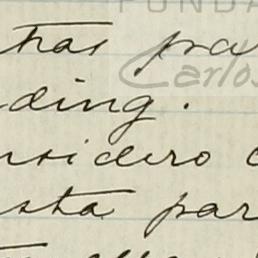 FUNDA
tras pra
Carlos
ding.
nsidero
sta par